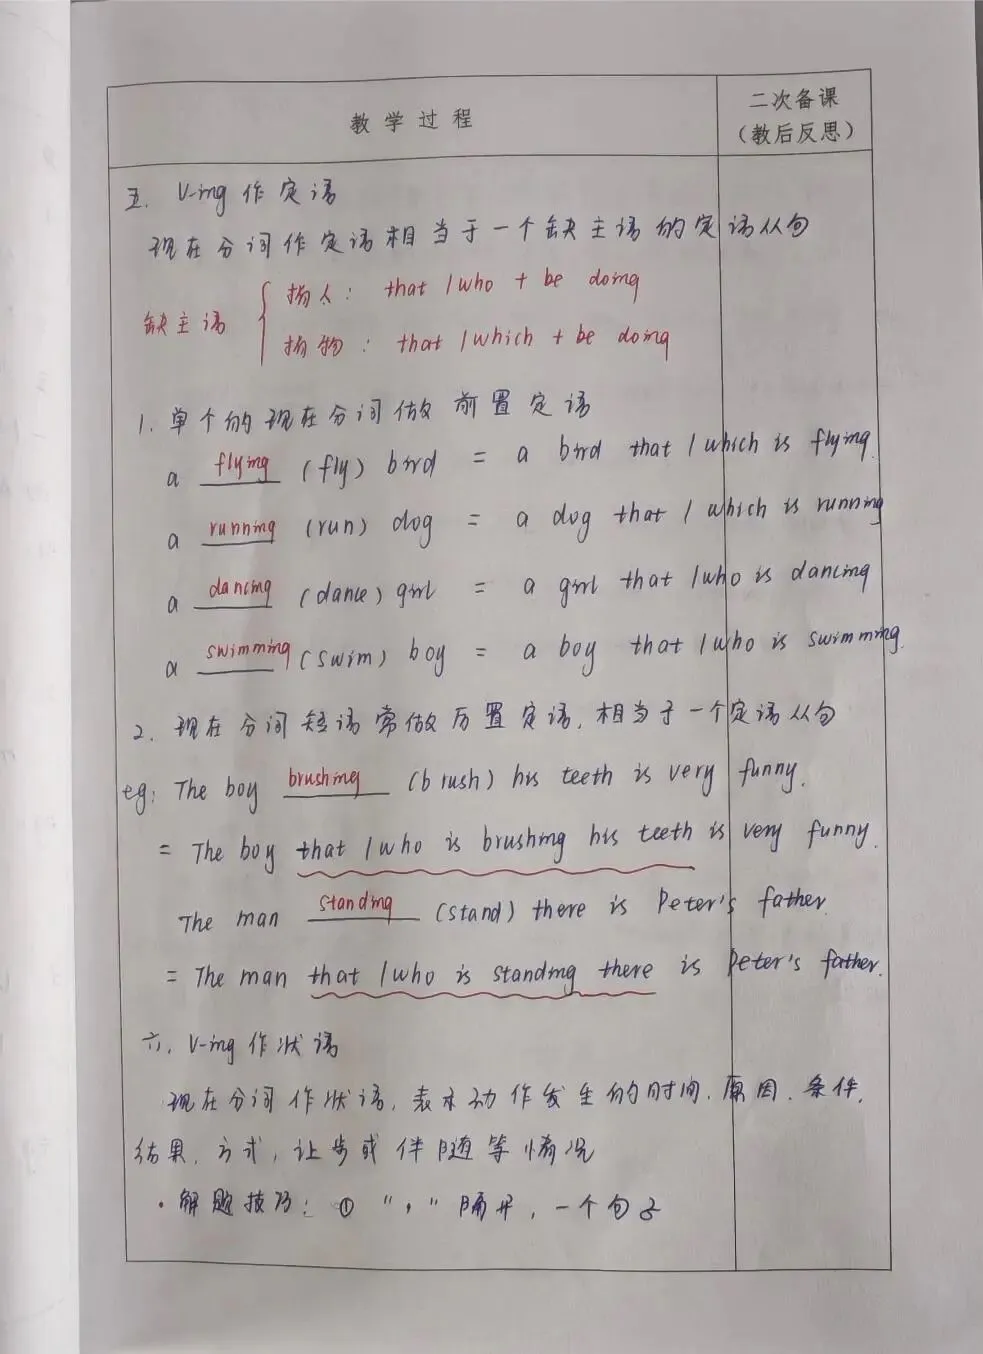 教学过程
二次备课
（教后反思）
五. V-ing 作定语
现在分词作定语相当于一个缺主语的定语从句
缺主语 { 指人: that / who + be doing
指物: that / which + be doing
1. 单个的现在分词做前置定语
a flying (fly) bird = a bird that / which is flying.
a running (run) dog = a dog that / which is running
a dancing (dance) girl = a girl that / who is dancing
a swimming (swim) boy = a boy that / who is swimming.
2. 现在分词短语常做后置定语, 相当于一个定语从句
eg: The boy brushing (brush) his teeth is very funny.
= The boy that / who is brushing his teeth is very funny.
The man standing (stand) there is Peter's father.
= The man that / who is standing there is Peter's father.
六. V-ing 作状语
现在分词作状语, 表示动作发生的时间. 原因. 条件.
结果. 方式, 让步或伴随等情况
· 解题技巧: ① "," 隔开, 一个句子